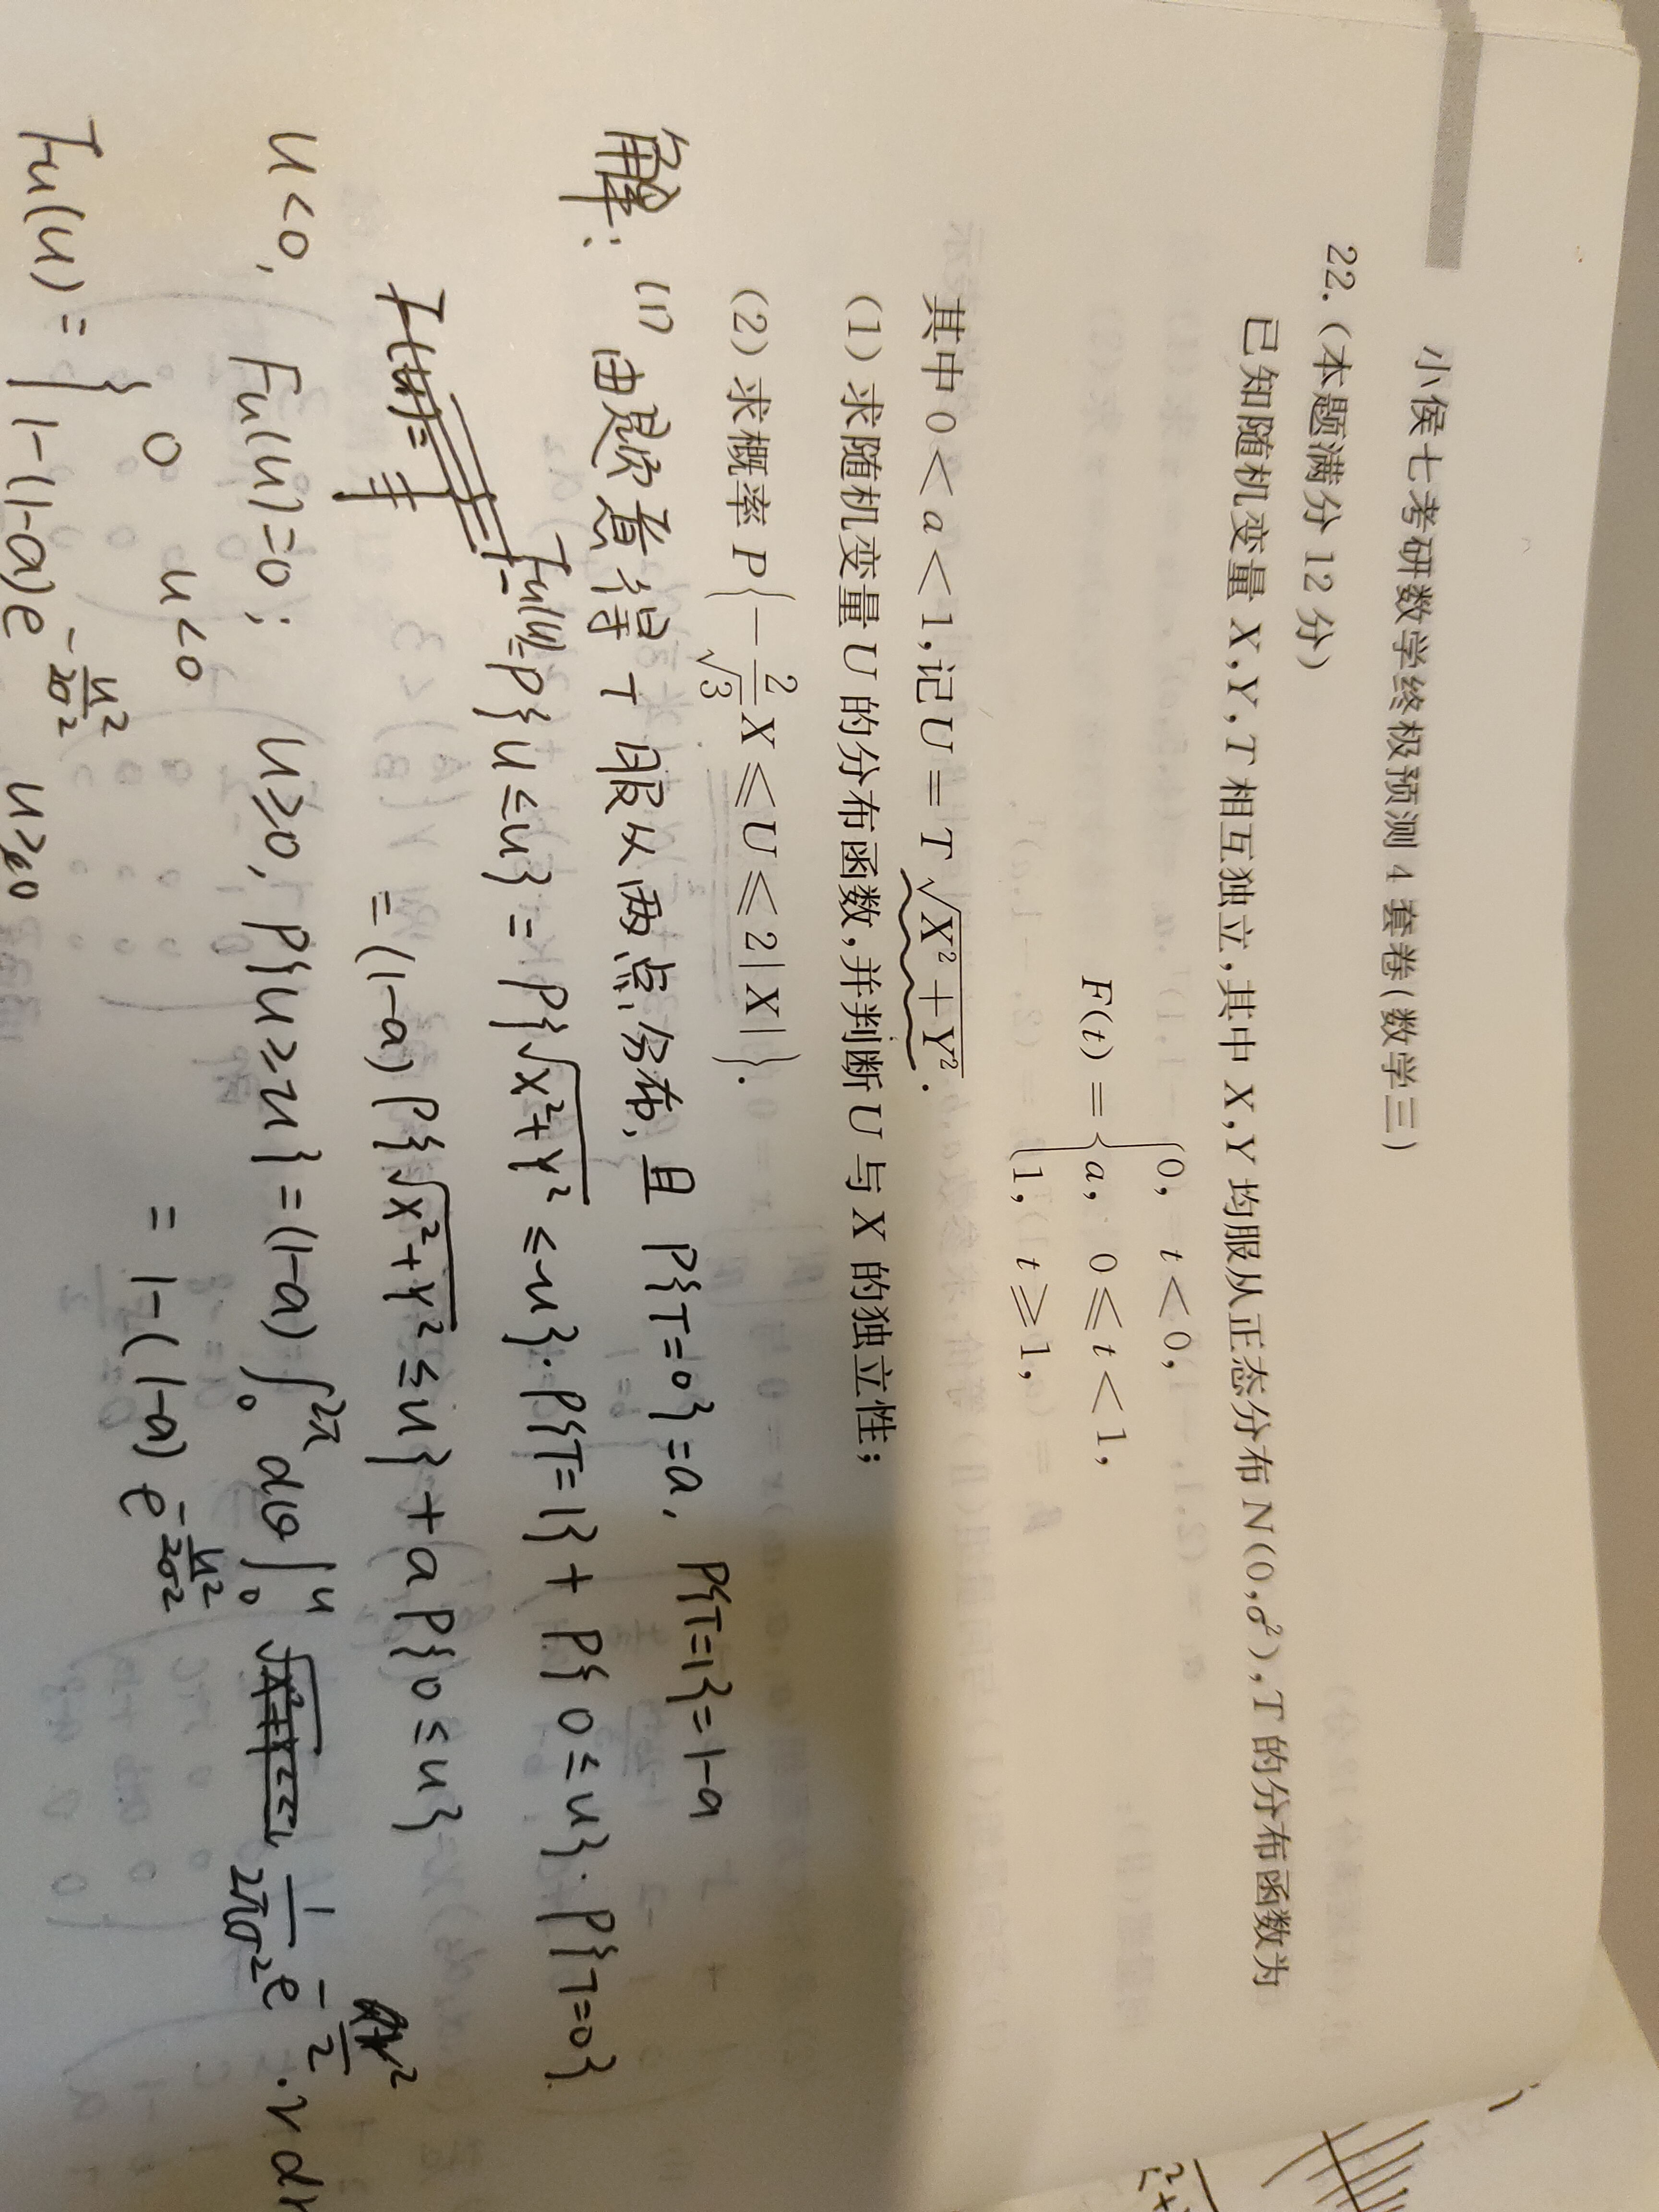 小侯七考研数学终极预测4套卷(数学三)
22.(本题满分12分)
已知随机变量X,Y,T相互独立,其中X,Y均服从正态分布N(0,σ²),T的分布函数为
F(t) = { 0, t<0,
a, 0≤t<1,
1, t≥1,
其中0<a<1,记U=T√(X²+Y²).
(1)求随机变量U的分布函数,并判断U与X的独立性;
(2)求概率P{-2/√3 X≤U≤2|X|}.
解: (1) 由题意得 T 服从两点分布, 且 P{T=0}=a, P{T=1}=1-a
Fu(u)=P{U≤u}=P{√(X²+Y²)≤u}·P{T=1}+P{0≤u}·P{T=0}
=(1-a)P{√(X²+Y²)≤u}+aP{0≤u}
u<0, Fu(u)=0; u≥0, P{u≥u}=(1-a)∫₀^2π dθ∫₀^u 1/2πσ² e^-/2 ·r dr
= 1-(1-a)e^-u²/2σ²
Fu(u)= { 0 u<0
1-(1-a)e^-u²/2σ² u≥0